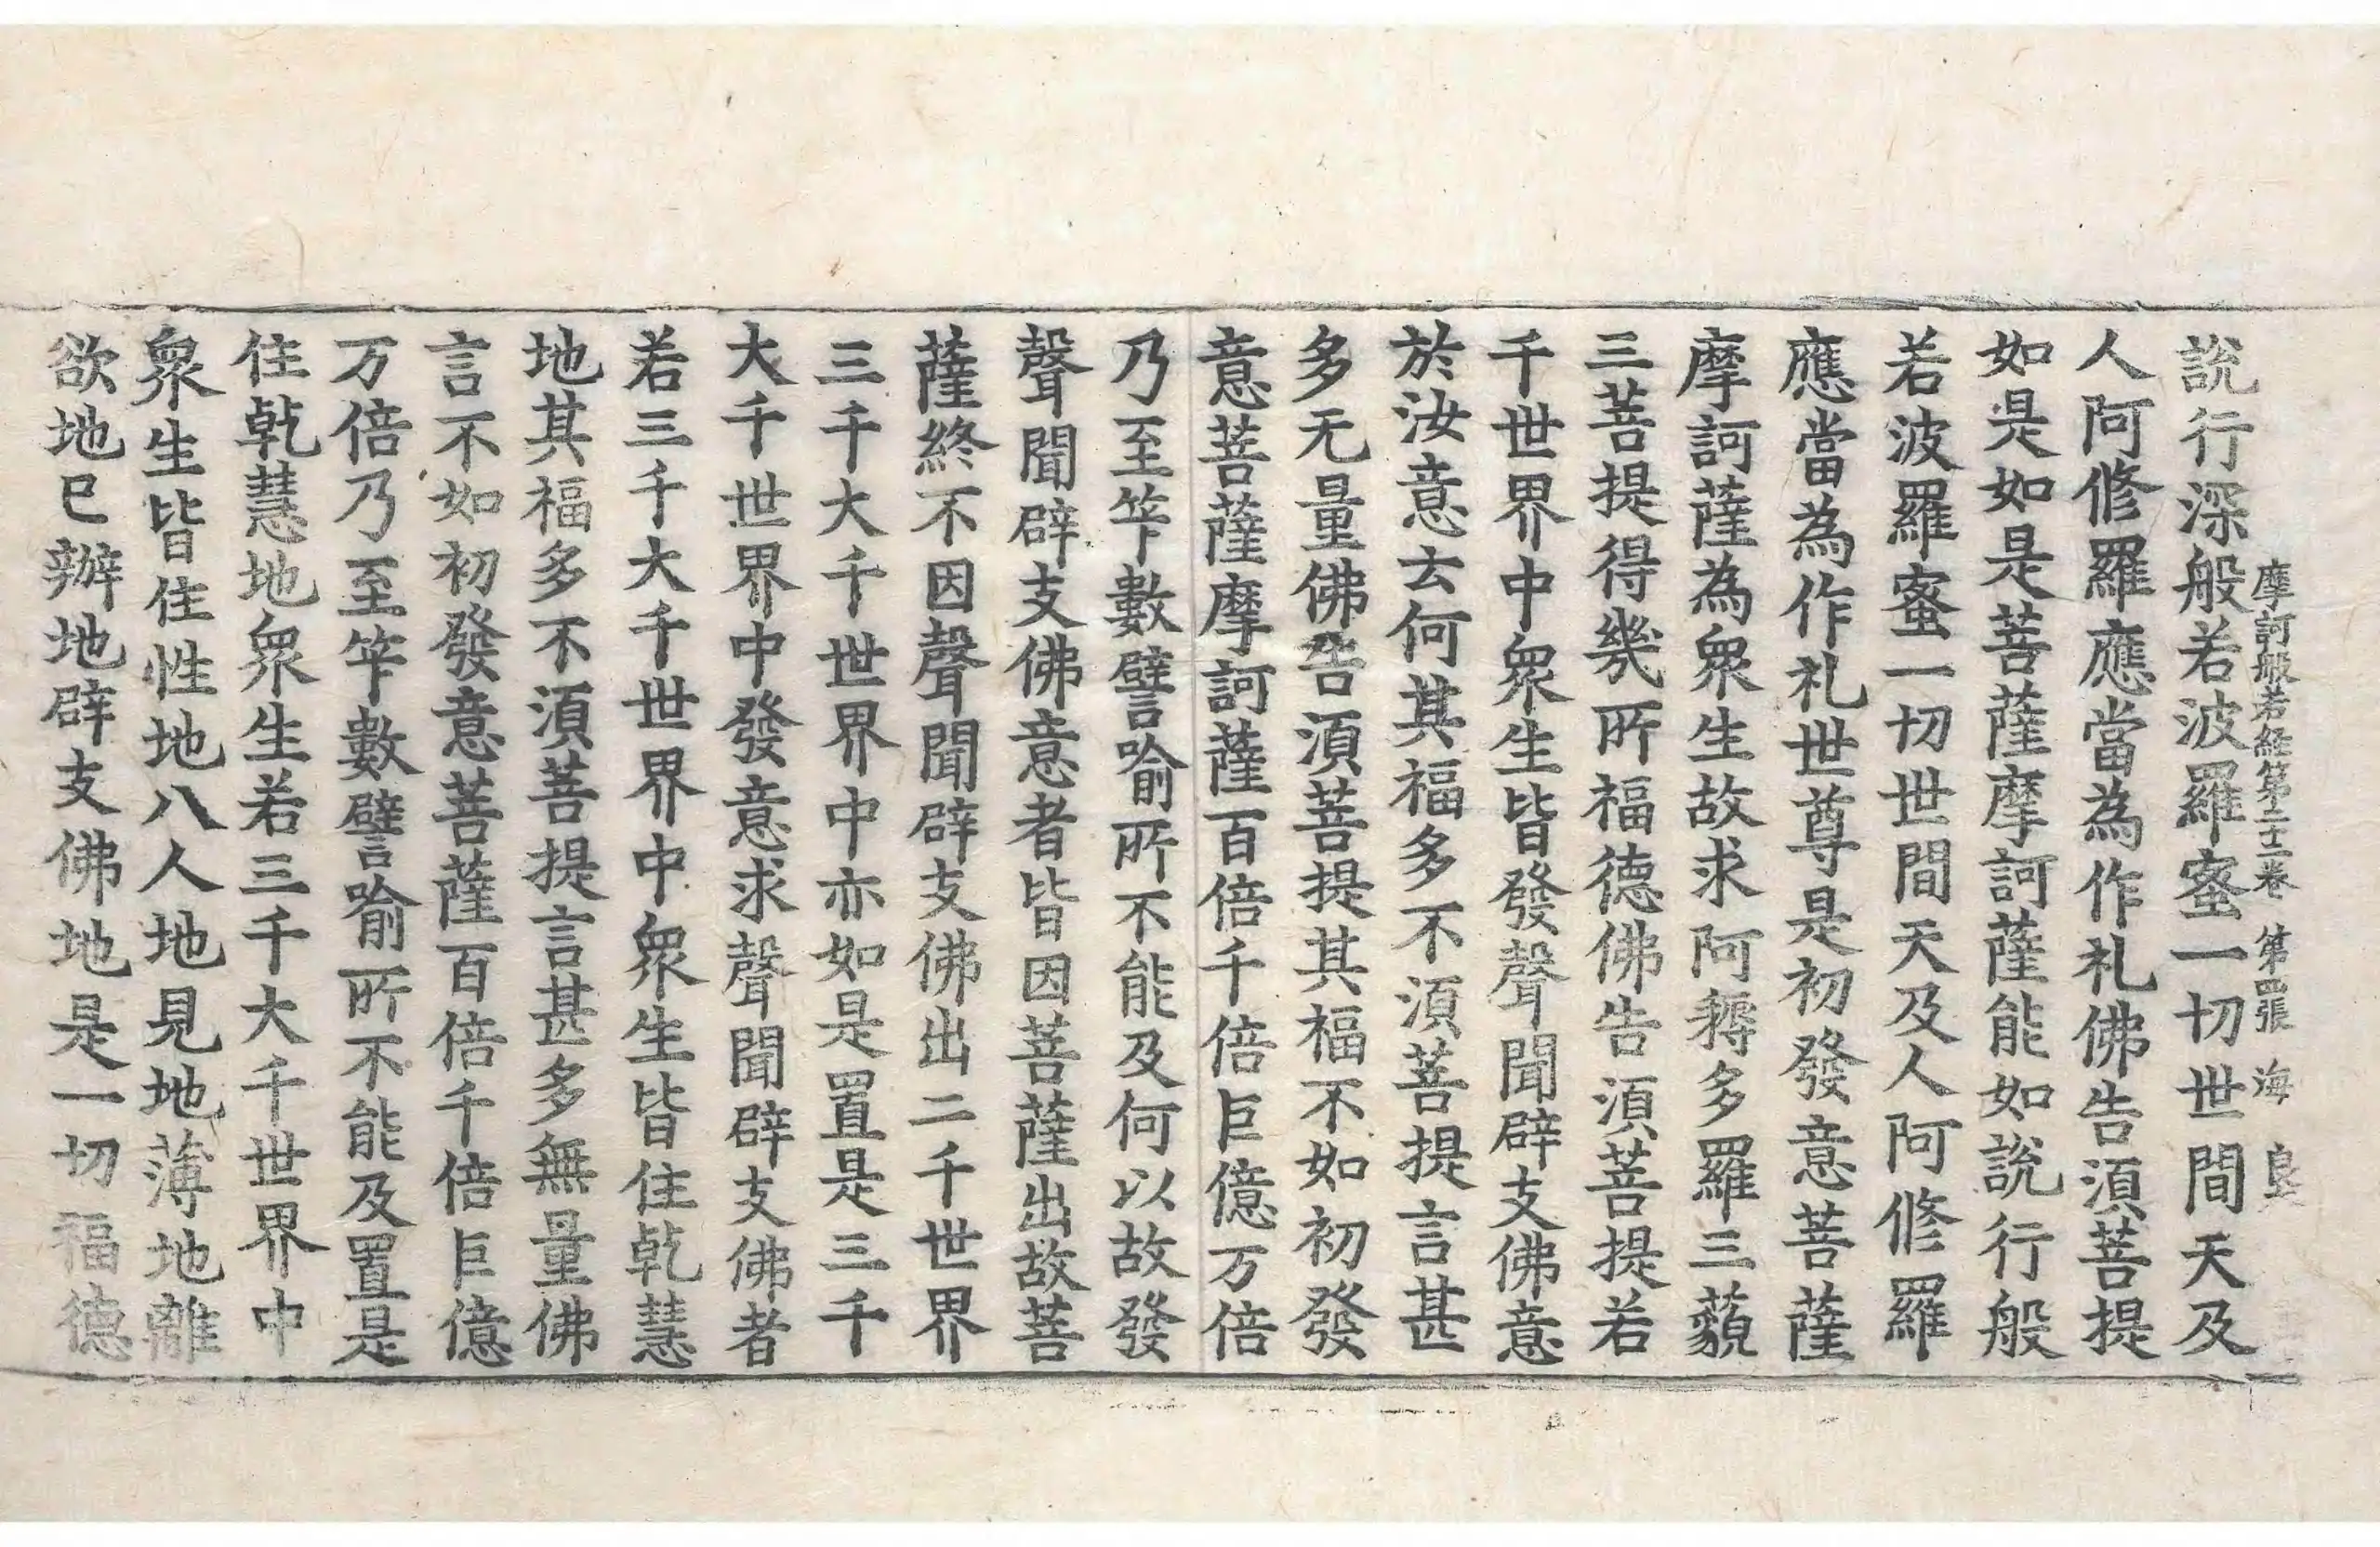 摩訶般若経第二十二卷 第四張 海 良
說行深般若波羅蜜一切世間天及
人阿修羅應當為作礼佛告須菩提
如是如是菩薩摩訶薩能如說行般
若波羅蜜一切世間天及人阿修羅
應當為作礼世尊是初發意菩薩
摩訶薩為衆生故求阿耨多羅三藐
三菩提得幾所福德佛告須菩提若
千世界中衆生皆發聲聞辟支佛意
於汝意云何其福多不須菩提言甚
多无量佛告須菩提其福不如初發
意菩薩摩訶薩百倍千倍巨億万倍
乃至筭數譬喻所不能及何以故發
聲聞辟支佛意者皆因菩薩出故菩
薩終不因聲聞辟支佛出二千世界
三千大千世界中亦如是置是三千
大千世界中發意求聲聞辟支佛者
若三千大千世界中衆生皆住乹慧
地其福多不須菩提言甚多無量佛
言不如初發意菩薩百倍千倍巨億
万倍乃至筭數譬喻所不能及置是
住乹慧地衆生若三千大千世界中
衆生皆住性地八人地見地薄地離
欲地已辦地辟支佛地是一切福德